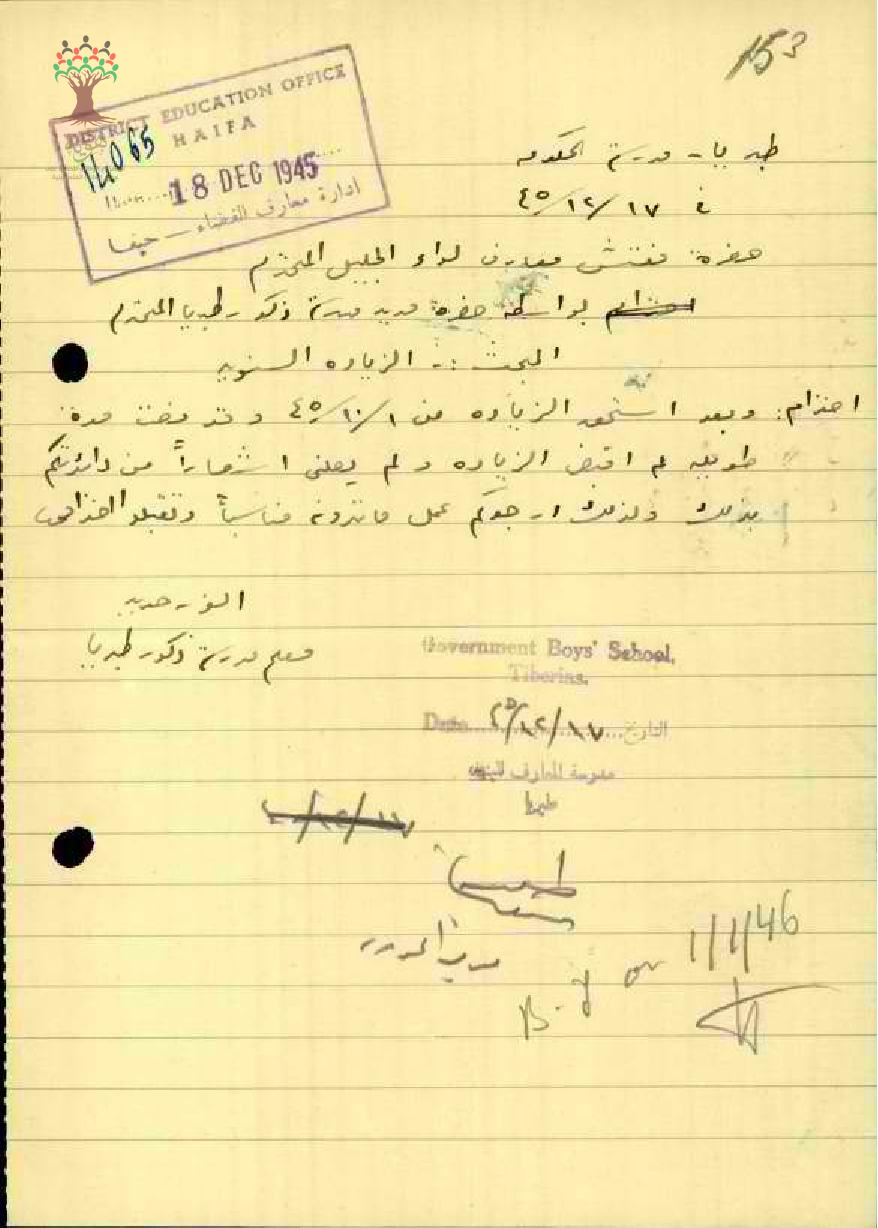 153
DISTRICT EDUCATION OFFICE
HAIFA
14065
18 DEC 1945
ادارة معارف القضاء — حيفا
طبريا - مدرسة الحكومه
في ١٧/١٢/٤٥
حضرة مفتش معارف لواء الجليل المحترم
بواسطة حضرة مدير مدرسة ذكور طبريا المحترم
المبحث :- الزياده السنويه
احترام: وبعد استحق الزياده من ١/١٠/٤٥ وقد مضت مدة
طويله لم اقبض الزياده ولم يصلني اشعاراً من دائرتكم
بذلك ولذلك ارجوكم عمل ما ترونه مناسباً وتقبلوا احترامي
معلم مدرسة ذكور طبريا
Government Boys' School,
Tiberias.
Date ١٧/١٢/٤٥ التاريخ
مدرسة المعارف للبنين
طبريا
١٧/١٢/
مدير المدرسة
B. F on 1/1/46